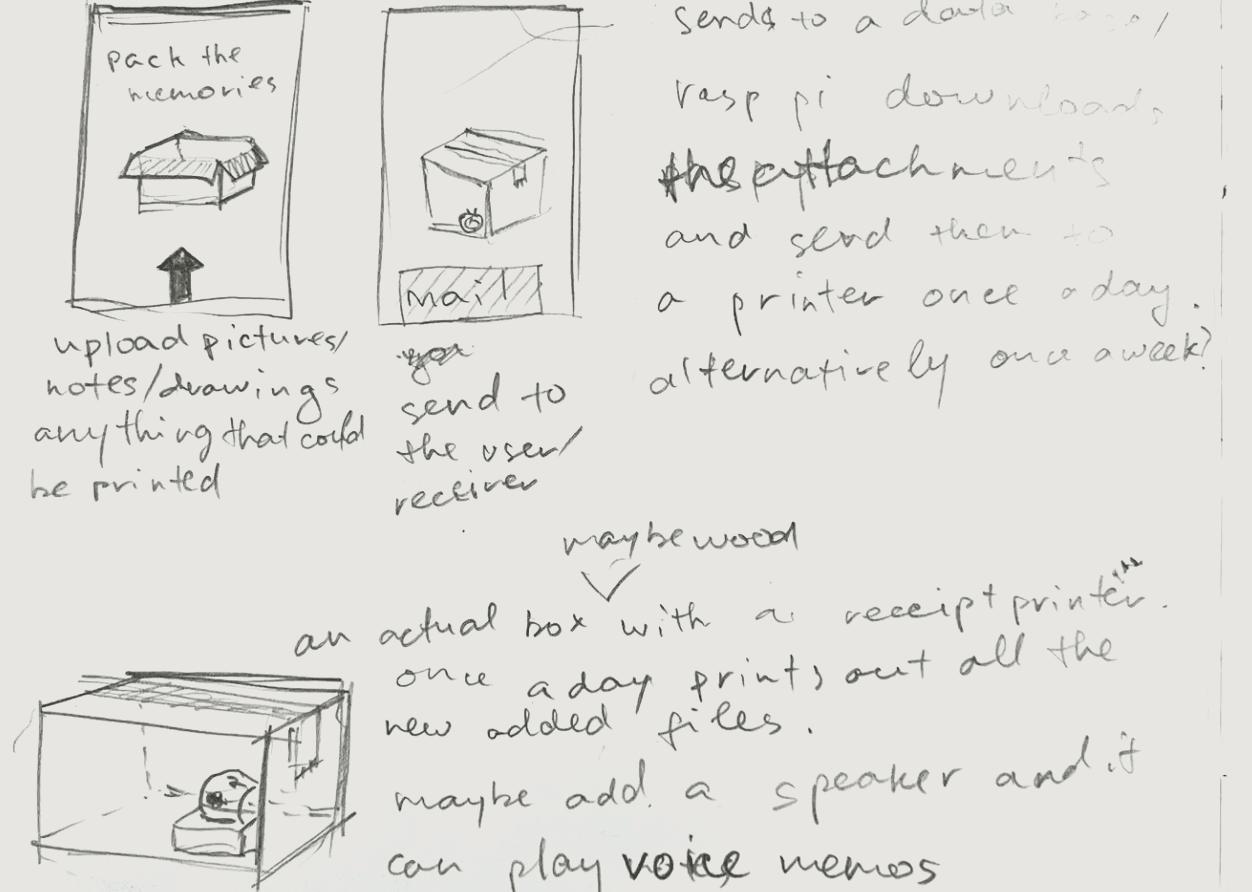 pack the
memories
upload pictures/
notes/drawings
anything that could
be printed
mail
you
send to
the user/
receiver
sends to a data base/
rasp pi downloads
the attachments
and send them to
a printer once a day.
alternatively once a week?
maybe wood
an actual box with a receipt printer.
once a day prints out all the
new added files.
maybe add a speaker and it
can play voice memos